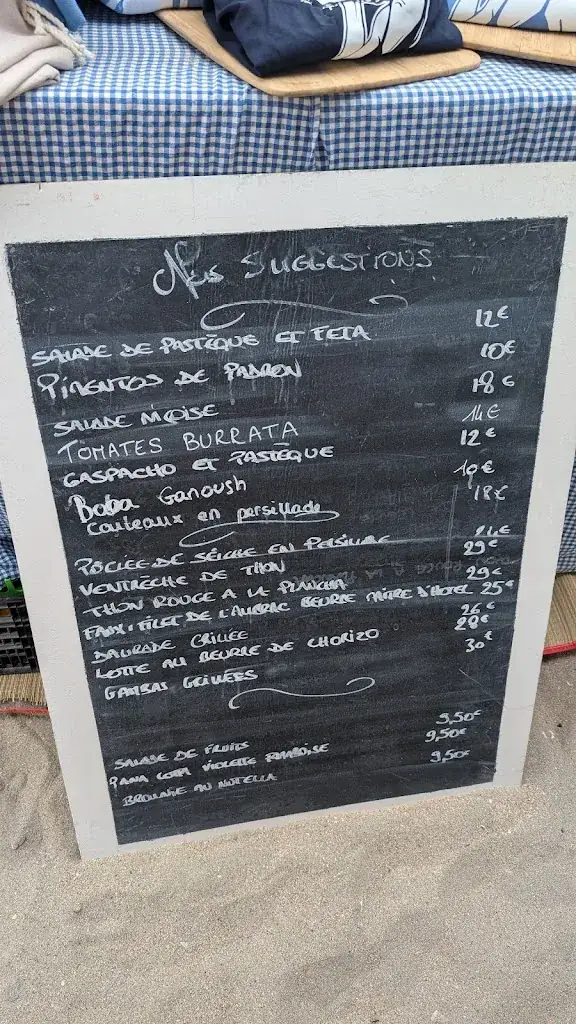 Nos SUGGESTIONS
SALADE DE PASTÈQUE ET FETA 12€
PIMENTOS DE PADRON 10€
SALADE MOISE 18€
TOMATES BURRATA 14€
GASPACHO ET PASTÈQUE 12€
Baba Ganoush 10€
Couteaux en persillade 18€
POÊLÉE DE SEICHE EN PERSILLADE
VENTRÈCHE DE THON 29€
THON ROUGE A LA PLANCHA 29€
FAUX FILET DE L'AUBRAC BEURRE MAÎTRE D'HÔTEL 25€
DAURADE GRILLÉE 26€
LOTTE AU BEURRE DE CHORIZO 28€
GAMBAS GRILLÉES 30€
SALADE DE FRUITS 9,50€
PANA COTTA VIOLETTE FRAMBOISE 9,50€
BROWNIE AU NUTELLA 9,50€